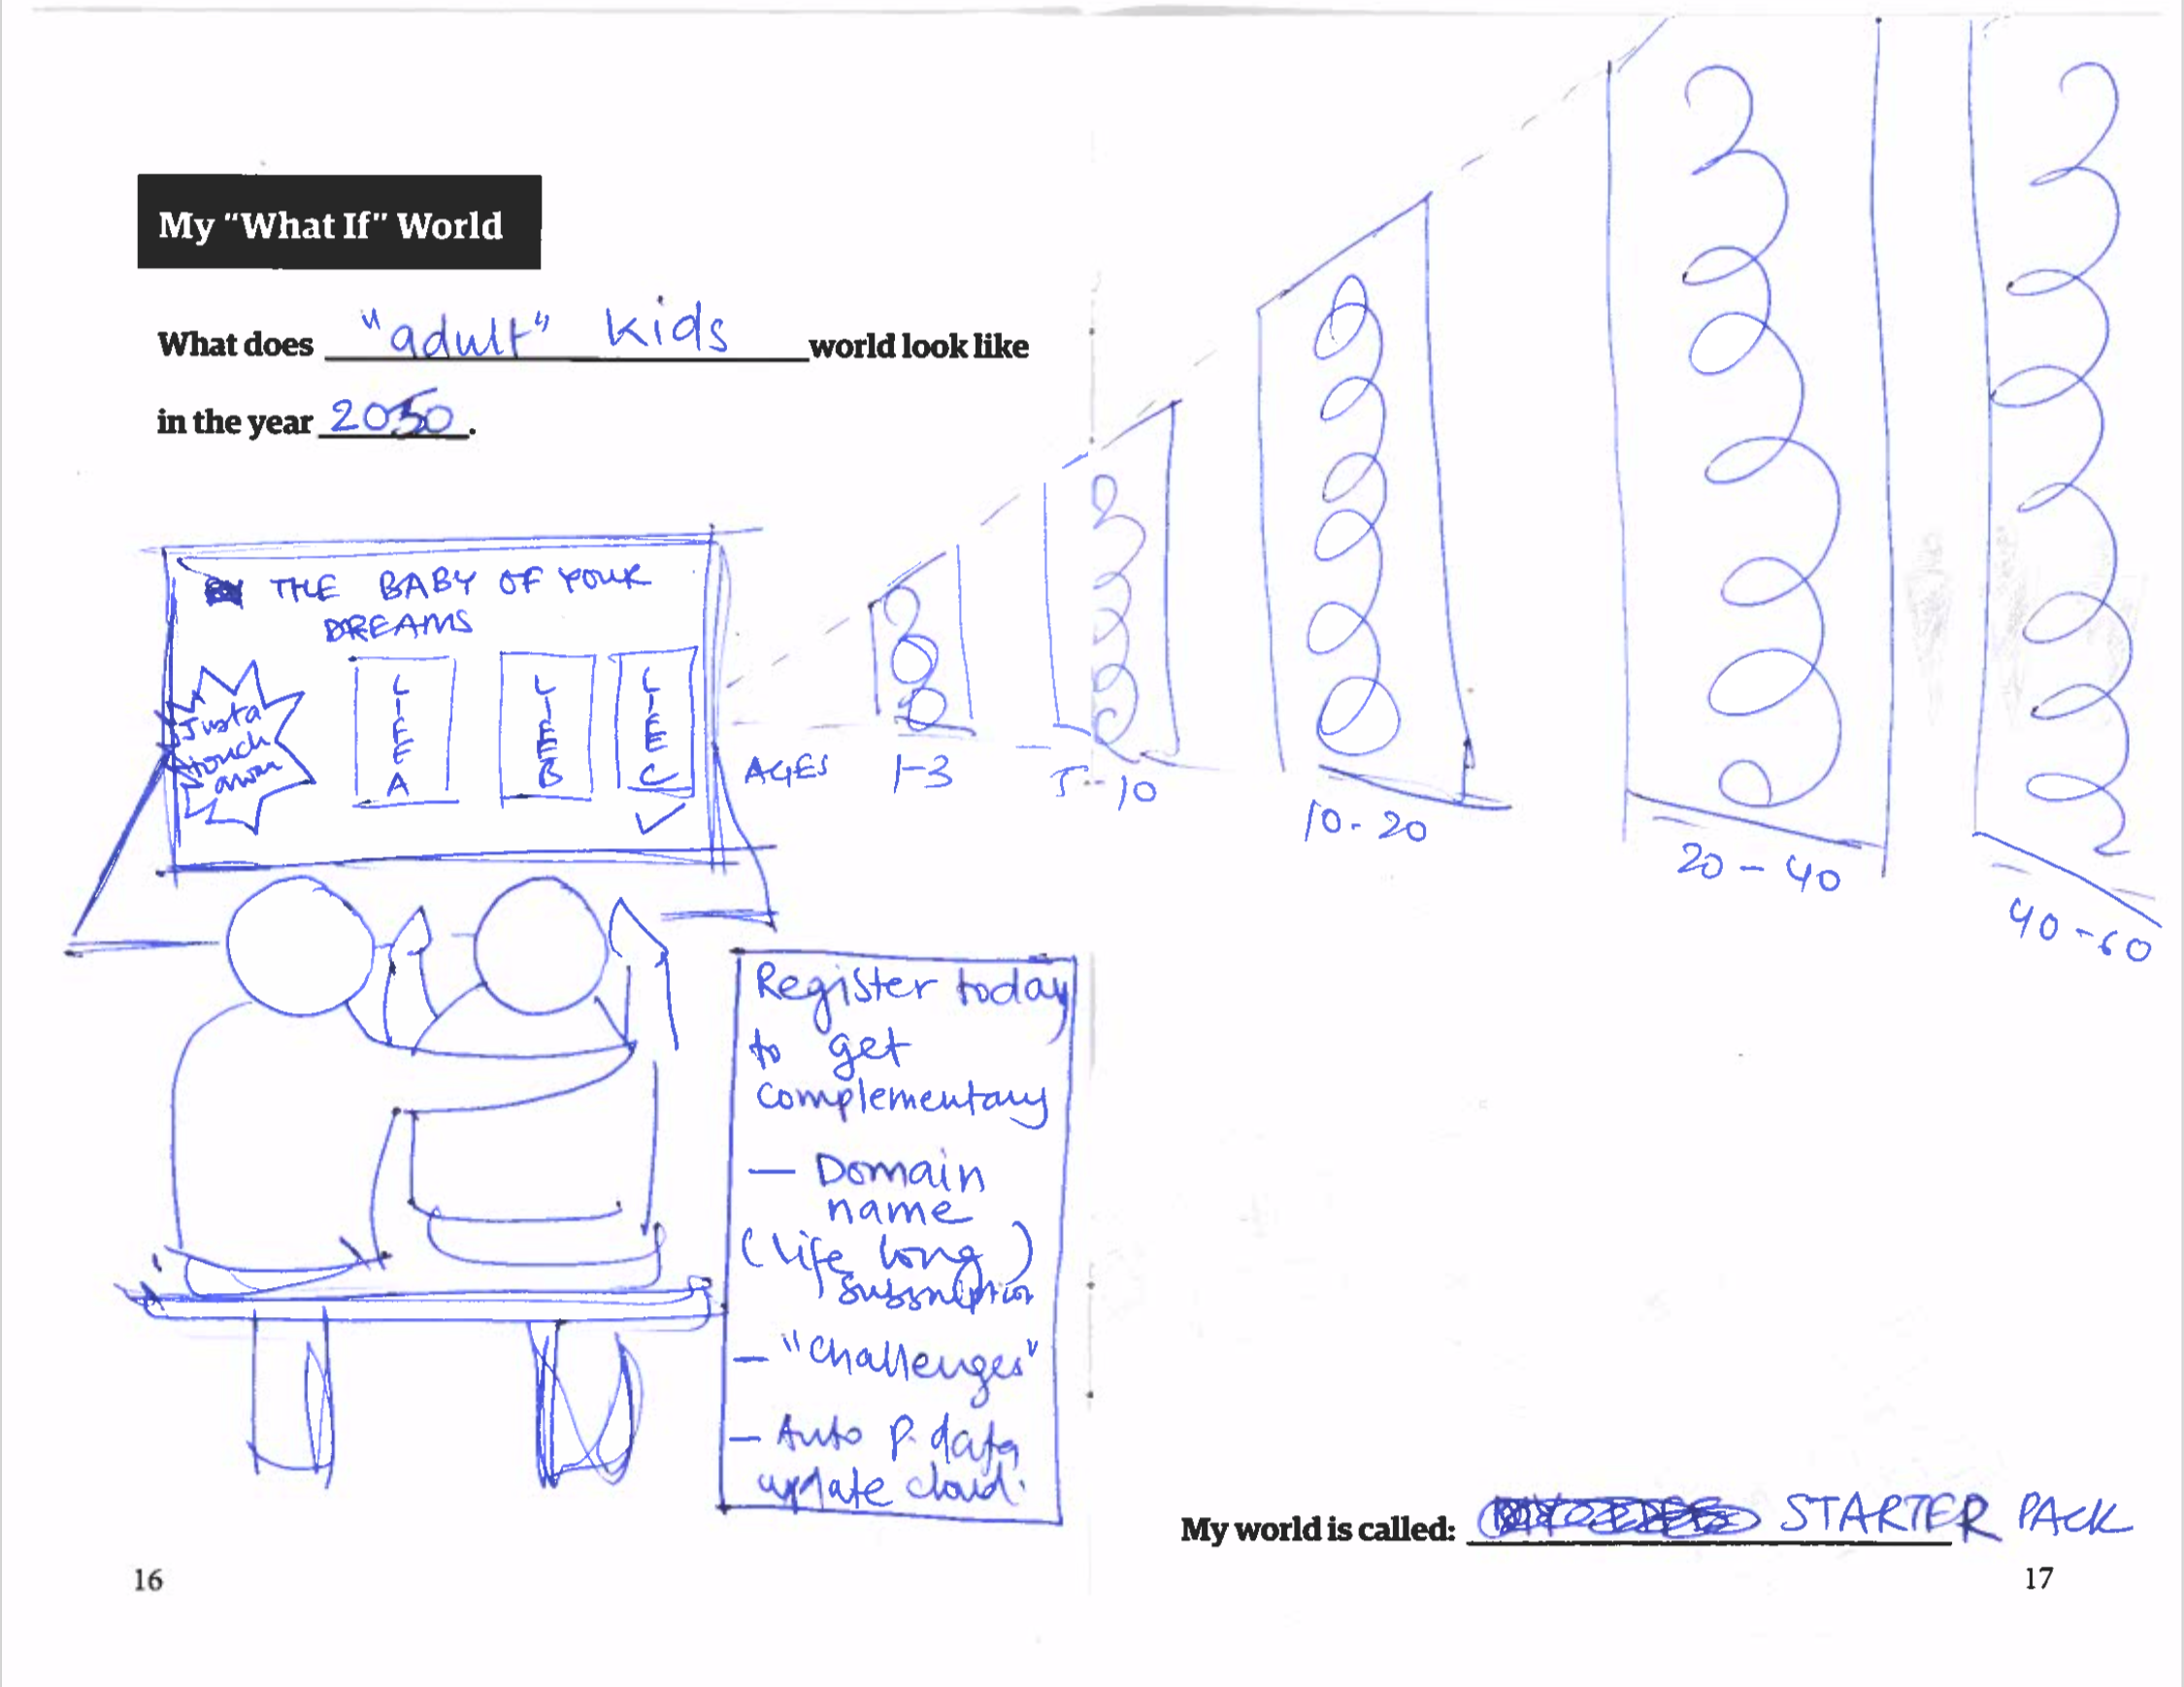 My "What If" World
What does "adult" kids world look like
in the year 2050.
THE BABY OF YOUR
DREAMS
Just a
touch
away
LIFE A
LIFE B
LIFE C
AGES 1-3 5-10 10-20 20-40 40-60
Register today
to get
complementary
— Domain
name
(life long)
subscription
— "Challenges"
— Auto P. data
update cloud.
My world is called: STARTER PACK
16
17